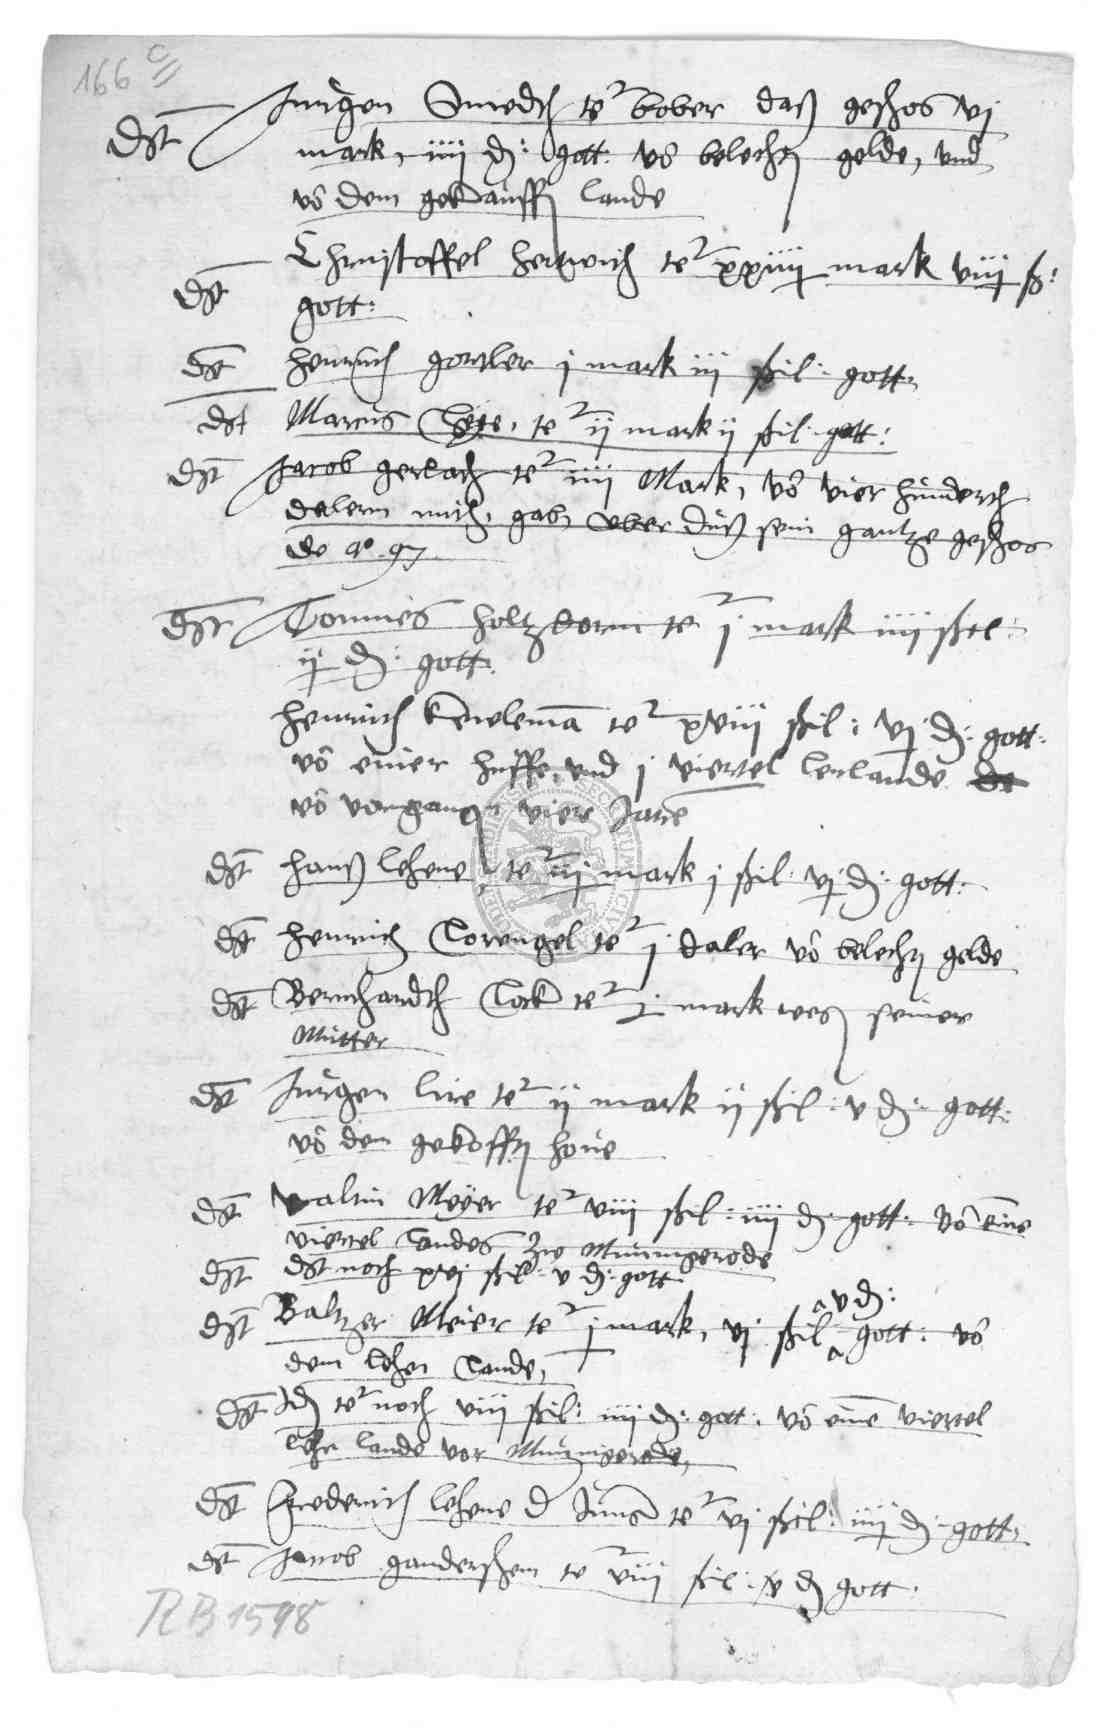 166 c
Jurgen Smedt te² bober daß geschos vj
dt mark, iiij d: gott. vō belecht gelde, vnd
vō dem gekaufft lande
Christoffel hertwich te² xxiiij mark viij ß:
dt gott:
dt henrich gortler j mark iij ßil: gott:
dt Marcus te² ij mark ij ßil: gott:
dt Jacob gerlach te² iiij Mark, vō vier hundert
dalern gab vber duß sein gantze geschos
de aº. 97
dt Tonnies holtzborn te² j mark iiij ßil:
ij d: gott.
henrich te² xviij ßil: vj d: gott:
vō einer huffe, vnd j viertel lande
vō vorgangen vier Jare
dt hanß lehene te² iij mark j ßil: vj d: gott:
dt henrich te² j daler vō belecht gelde
dt Bernhardt Cock te² j mark weg seiner
Mutter
dt Jurgen te² ij mark ij ßil: v d: gott:
vō dem gekofft houe
dt valtin Meyer te² viij ßil: iiij d: gott: vō eine
viertel Landes zw Munnigerode
dt dt noch xvj ßil: v d: gott
v d:
dt Baltzer Meier te² j mark, vj ßil gott: vō
dem lehen Lande,
dt Jd te² noch viij ßil: iiij d: gott: vō eine viertel
lehn lande vor Munnigerode,
dt Frederich lehene d Juns te² vj ßil: iiij d: gott:
dt Jacob gandershem te² viij ßil: v d gott:
RB 1598